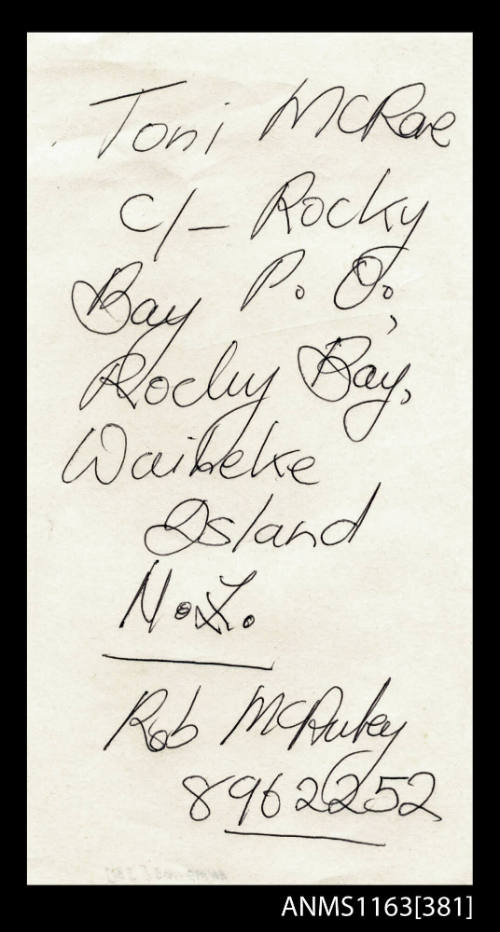 Toni McRae
C/- Rocky
Bay P.O.,
Rocky Bay,
Waiheke
Island
N.Z.
Rob McAuley
8962252
ANMS1163[381]